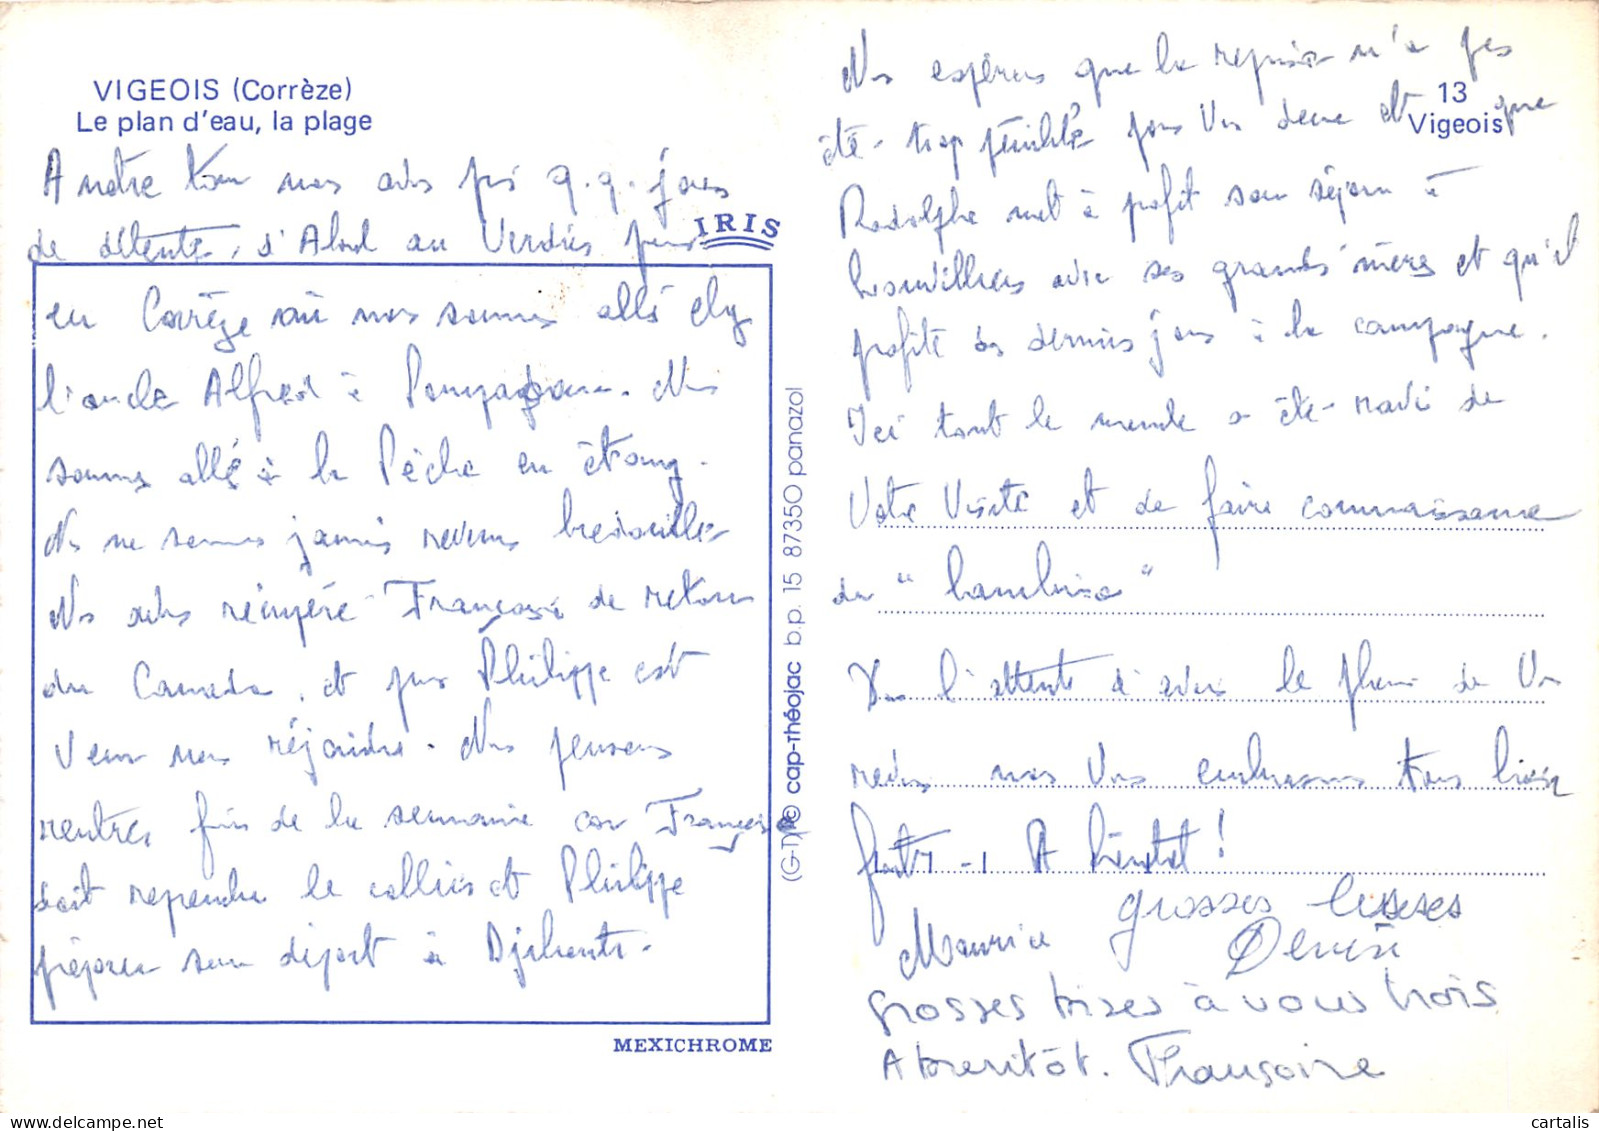 VIGEOIS (Corrèze)
Le plan d'eau, la plage
A notre tour nous avons pris q.q. jours
de détente, d'Abord au Verdier puis
en Corrèze où nous sommes allé chez
l'oncle Alfred à Pompadour. Ns
sommes allé à la Pêche en étang.
Ns ne sommes jamais revenus bredouilles
Ns avons récupéré Françoise de retour
du Canada, et puis Philippe est
venu nous rejoindre. Nous pensons
rentrer fin de la semaine car Françoise
doit reprendre le collier et Philippe
préparer son départ à Djibouti.
IRIS
MEXICHROME
(G-T) © cap-théojac b.p. 15 87350 panazol
13
Vigeois
Ns espérons que la reprise n'a pas
été trop pénible pour Vs deux et que
Rodolphe met à profit son séjour à
avec ses grands'mères et qu'il
profite des derniers jours à la campagne.
Ici tout le monde a été ravi de
Votre Visite et de faire connaissance
du "bambino"
Ds l'attente d'avoir le plaisir de Vs
revoir nous Vous embrassons tous bien
fort. A bientôt !
Maurice
grosses bises
Denise
grosses bises à vous trois
A bientôt. Françoise
cartalis